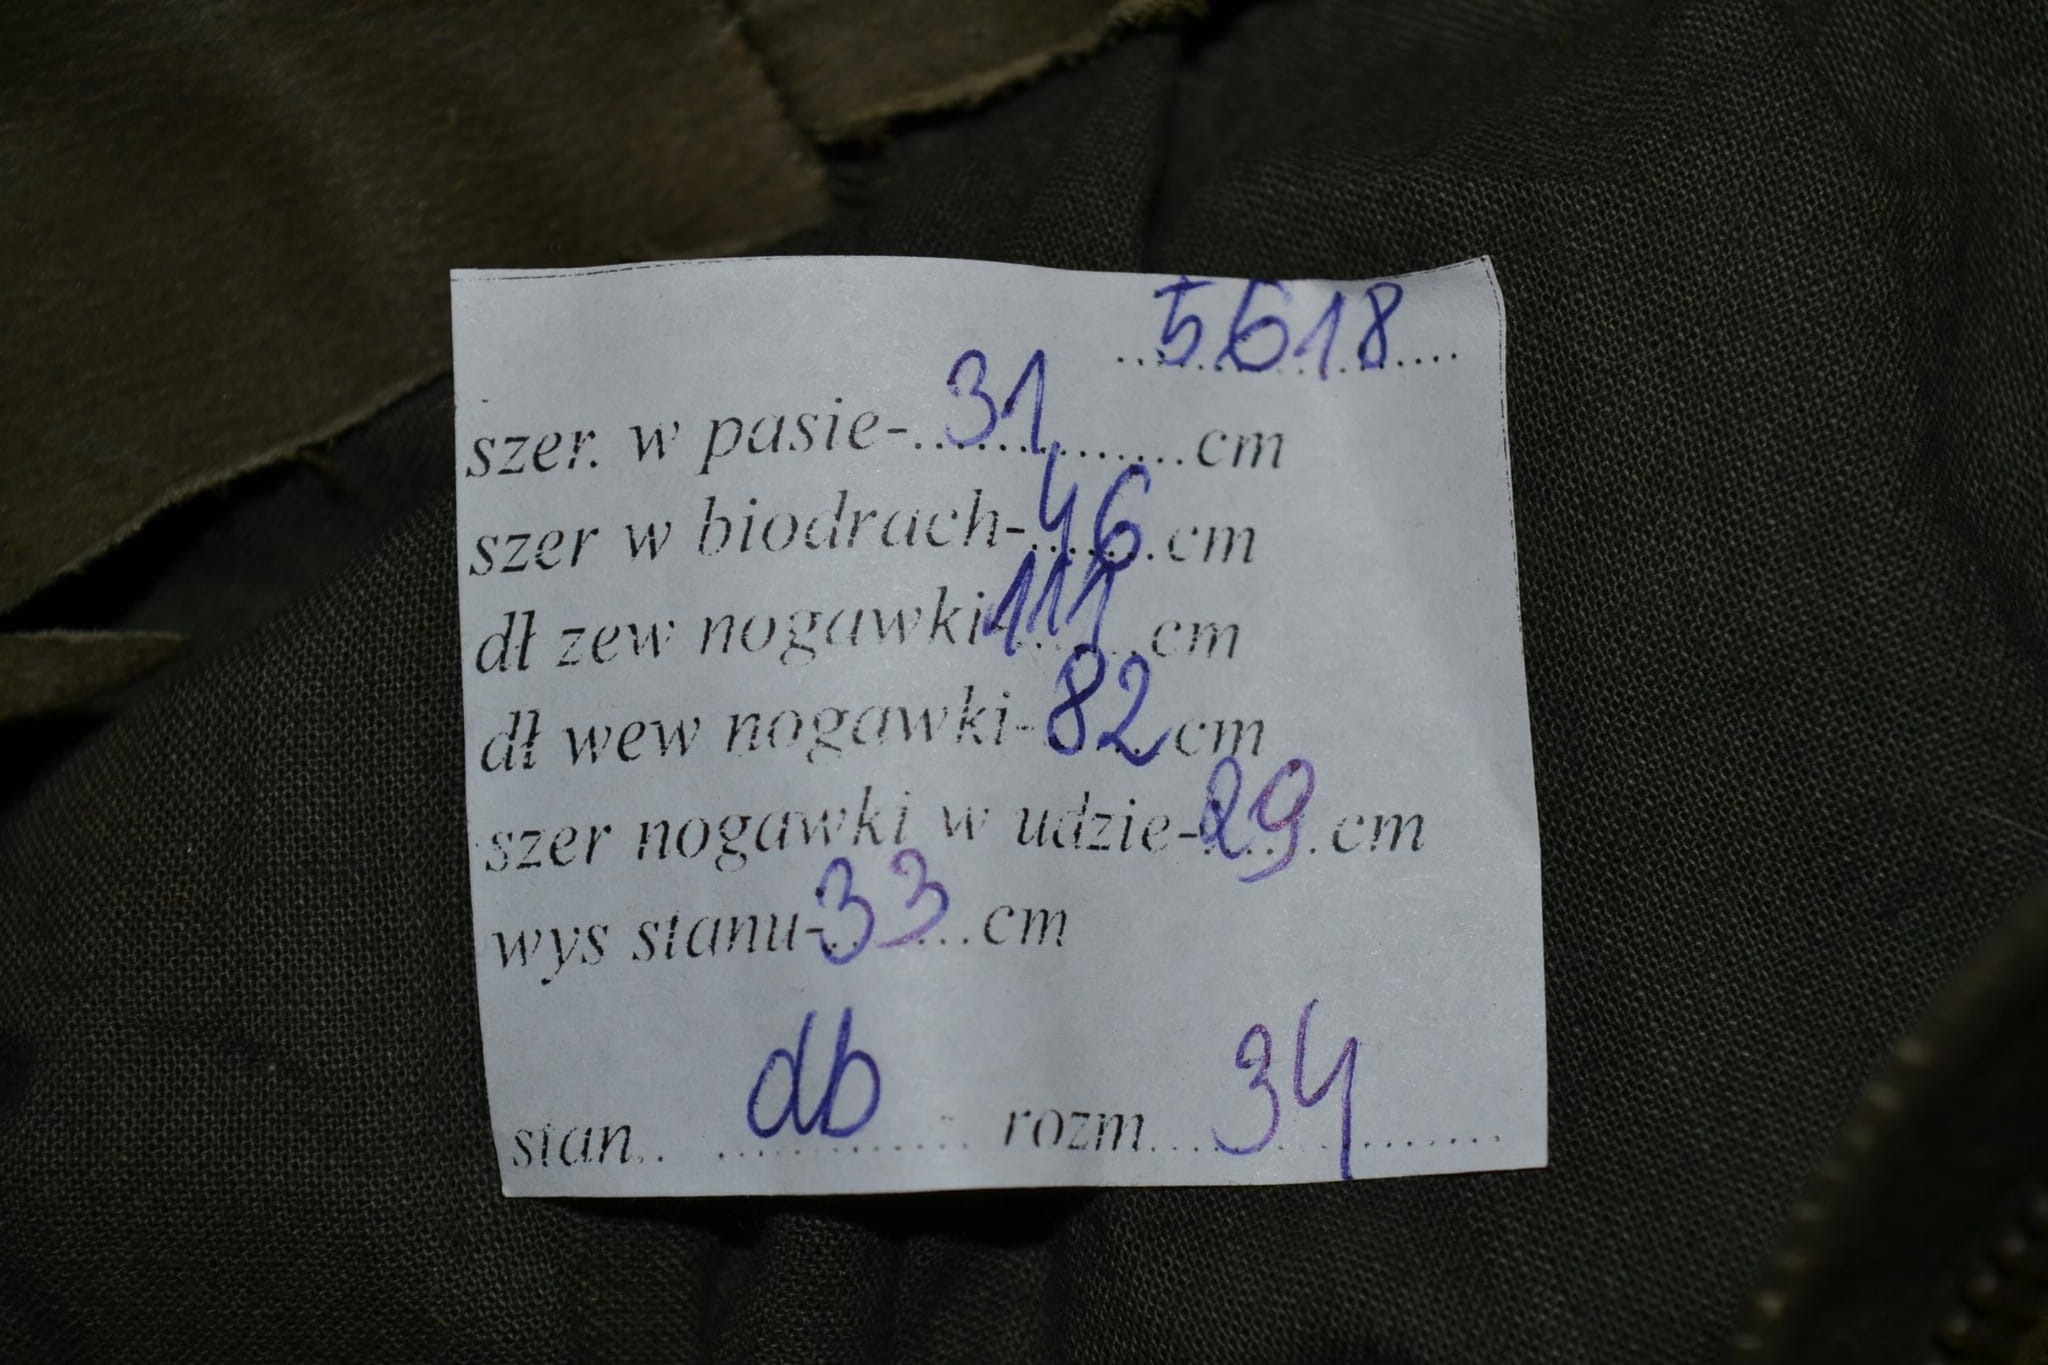 5618
szer. w pasie-...31...cm
szer w biodrach-...46...cm
dł zew nogawki-111...cm
dł wew nogawki-82...cm
szer nogawki w udzie-29...cm
wys stanu-33...cm
stan.. db... rozm...34...